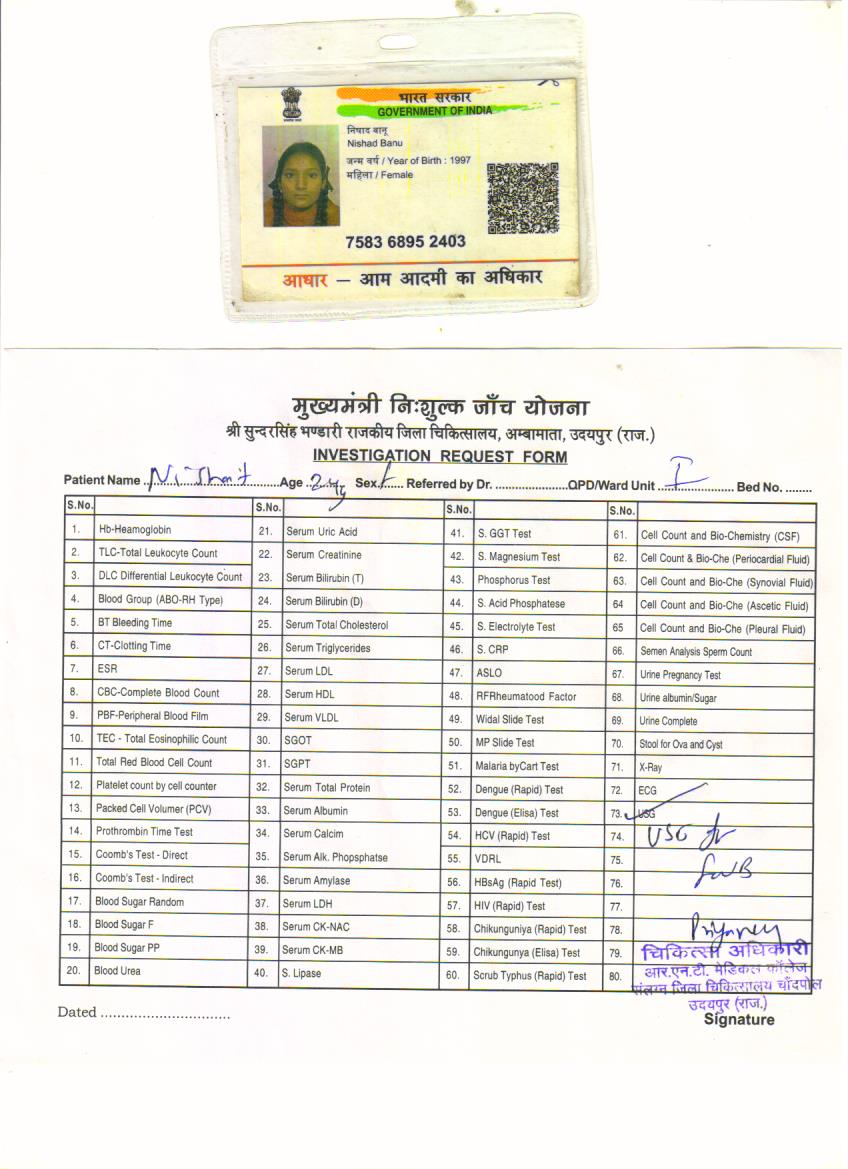 भारत सरकार
GOVERNMENT OF INDIA
निषाद बानू
Nishad Banu
जन्म वर्ष / Year of Birth : 1997
महिला / Female
7583 6895 2403
आधार – आम आदमी का अधिकार
मुख्यमंत्री निःशुल्क जाँच योजना
श्री सुन्दरसिंह भण्डारी राजकीय जिला चिकित्सालय, अम्बामाता, उदयपुर (राज.)
INVESTIGATION REQUEST FORM
Patient Name .. Age .. Sex.. Referred by Dr. .....................OPD/Ward Unit .. I .. Bed No. ........
S.No. S.No. S.No. S.No.
1. Hb-Heamoglobin 21. Serum Uric Acid 41. S. GGT Test 61. Cell Count and Bio-Chemistry (CSF)
2. TLC-Total Leukocyte Count 22. Serum Creatinine 42. S. Magnesium Test 62. Cell Count & Bio-Che (Periocardial Fluid)
3. DLC Differential Leukocyte Count 23. Serum Bilirubin (T) 43. Phosphorus Test 63. Cell Count and Bio-Che (Synovial Fluid)
4. Blood Group (ABO-RH Type) 24. Serum Bilirubin (D) 44. S. Acid Phosphatese 64 Cell Count and Bio-Che (Ascetic Fluid)
5. BT Bleeding Time 25. Serum Total Cholesterol 45. S. Electrolyte Test 65 Cell Count and Bio-Che (Pleural Fluid)
6. CT-Clotting Time 26. Serum Triglycerides 46. S. CRP 66. Semen Analysis Sperm Count
7. ESR 27. Serum LDL 47. ASLO 67. Urine Pregnancy Test
8. CBC-Complete Blood Count 28. Serum HDL 48. RFRheumatood Factor 68. Urine albumin/Sugar
9. PBF-Peripheral Blood Film 29. Serum VLDL 49. Widal Slide Test 69. Urine Complete
10. TEC - Total Eosinophilic Count 30. SGOT 50. MP Slide Test 70. Stool for Ova and Cyst
11. Total Red Blood Cell Count 31. SGPT 51. Malaria byCart Test 71. X-Ray
12. Platelet count by cell counter 32. Serum Total Protein 52. Dengue (Rapid) Test 72. ECG
13. Packed Cell Volumer (PCV) 33. Serum Albumin 53. Dengue (Elisa) Test 73. USG
14. Prothrombin Time Test 34. Serum Calcim 54. HCV (Rapid) Test 74. USG for
15. Coomb's Test - Direct 35. Serum Alk. Phopsphatse 55. VDRL 75. FWB
16. Coomb's Test - Indirect 36. Serum Amylase 56. HBsAg (Rapid Test) 76.
17. Blood Sugar Random 37. Serum LDH 57. HIV (Rapid) Test 77.
18. Blood Sugar F 38. Serum CK-NAC 58. Chikunguniya (Rapid) Test 78.
19. Blood Sugar PP 39. Serum CK-MB 59. Chikungunya (Elisa) Test 79. चिकित्सा अधिकारी
20. Blood Urea 40. S. Lipase 60. Scrub Typhus (Rapid) Test 80. आर.एन.टी. मेडिकल कॉलेज
संलग्न जिला चिकित्सालय चाँदपोल
उदयपुर (राज.)
Dated ............................... Signature